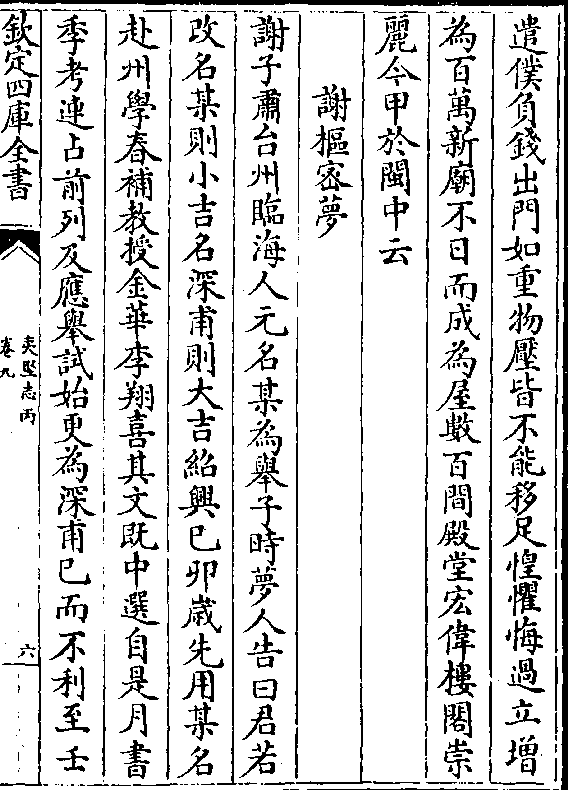 遣僕負錢出門如重物壓皆不能移足惶懼悔過立增
為百萬新廟不日而成為屋數百間殿堂宏偉樓閣崇
麗今甲於閩中云
謝樞密夢
謝子肅台州臨海人元名某為舉子時夢人告曰君若
改名某則小吉名深甫則大吉紹興巳卯歳先用某名
赴州學春補教授金華李翔喜其文既中選自是月書
季考連占前列及應舉試始更為深甫巳而不利至壬
欽定四庫全書
夷堅志丙
卷九
六